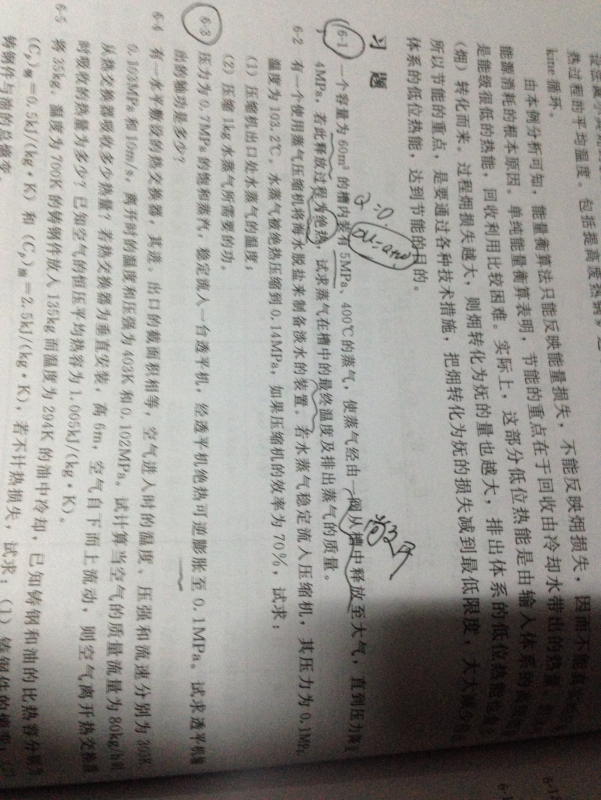 热过程的平均温度。包括提高度热锅炉
kine 循环。
由本例分析可知，能量衡算法只能反映能量损失，不能反映㶲损失，因而不能真
能源消耗的根本原因。单纯能量衡算表明，节能的重点在于回收由冷却水带出的热量，
是能级很低的热能，回收利用比较困难。实际上，这部分低位热能是由输入体系的
(㶲) 转化而来。过程㶲损失越大，则㶲转化为𬉼的量也越大，排出体系的低位热能也
所以节能的重点，是要通过各种技术措施，把㶲转化为𬉼的损失减到最低限度，大大减少
体系的低位热能，达到节能的目的。
习 题
Q=0
6-1 一个容量为 60m³ 的槽内装有 5MPa、400℃的蒸气，使蒸气经由一阀从槽中释放至大气，直到压力降至
4MPa，若此释放过程为绝热，试求蒸气在槽中的最终温度及排出蒸气的质量。
6-2 有一个使用蒸气压缩机将海水脱盐来制备淡水的装置。若水蒸气稳定流入压缩机，其压力为 0.1MPa，
温度为 103.2℃，水蒸气被绝热压缩到 0.14MPa，如果压缩机的效率为 70%，试求：
(1) 压缩机出口处水蒸气的温度；
(2) 压缩 1kg 水蒸气所需要的功。
6-3 压力为 0.7MPa 的饱和蒸汽，稳定流入一台透平机，经透平机绝热可逆膨胀至 0.1MPa。试求透平机输
出的轴功是多少？
6-4 有一水平敷设的热交换器，其进、出口的截面积相等，空气进入时的温度、压强和流速分别为 303K、
0.103MPa 和 10m/s，离开时的温度和压强为 403K 和 0.102MPa。试计算当空气的质量流量为 80kg/h时
从热交换器吸收多少热量？若热交换器为垂直安装，高 6m，空气自下而上流动，则空气离开热交换器
时吸收的热量为多少？已知空气的恒压平均热容为 1.005kJ/(kg·K)。
6-5 将 35kg、温度为 700K 的铸钢件放入 135kg 而温度为 294K 的油中冷却，已知铸钢和油的比热容分别为
(Cₚ)钢=0.5kJ/(kg·K) 和 (Cₚ)油=2.5kJ/(kg·K)，若不计热损失，试求：(1) 铸钢件的熵变；(2)
铸钢件与油的总熵变。